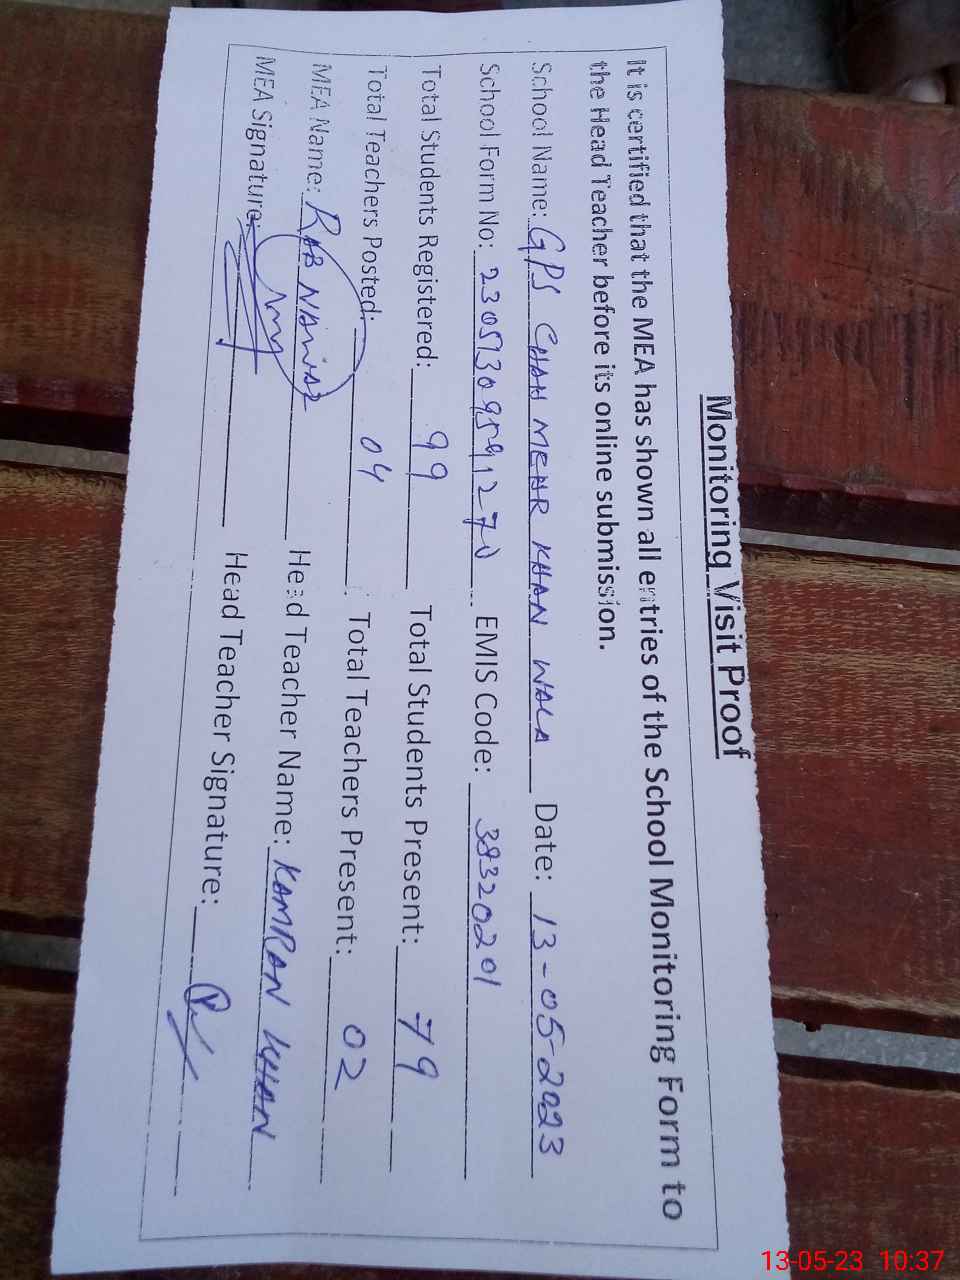 Monitoring Visit Proof
It is certified that the MEA has shown all entries of the School Monitoring Form to
the Head Teacher before its online submission.
School Name: GPS CHAH MEHR KHAN WALA Date: 13-05-2023
School Form No: EMIS Code: 38320201
Total Students Registered: 99 Total Students Present: 79
Total Teachers Posted: 04 Total Teachers Present: 02
MEA Name: RAB NAWAZ Head Teacher Name: KAMRAN KHAN
MEA Signature: Head Teacher Signature:
13-05-23 10:37